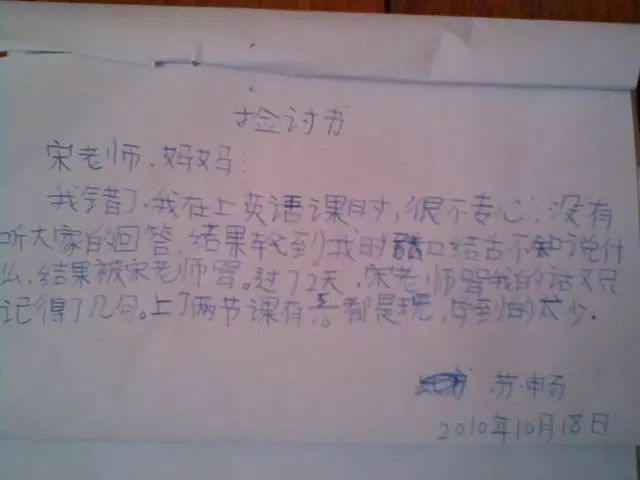 捡讨书
宋老师、妈妈:
我错了,我在上英语课时,很不专心,没有
听大家的回答,结果轮到我时口结舌不知说什
么,结果被宋老师骂。过了2天,宋老师骂我的话又只
记得了几句。上了两节课有都是玩,学到的太少。
苏畅
2010年10月18日